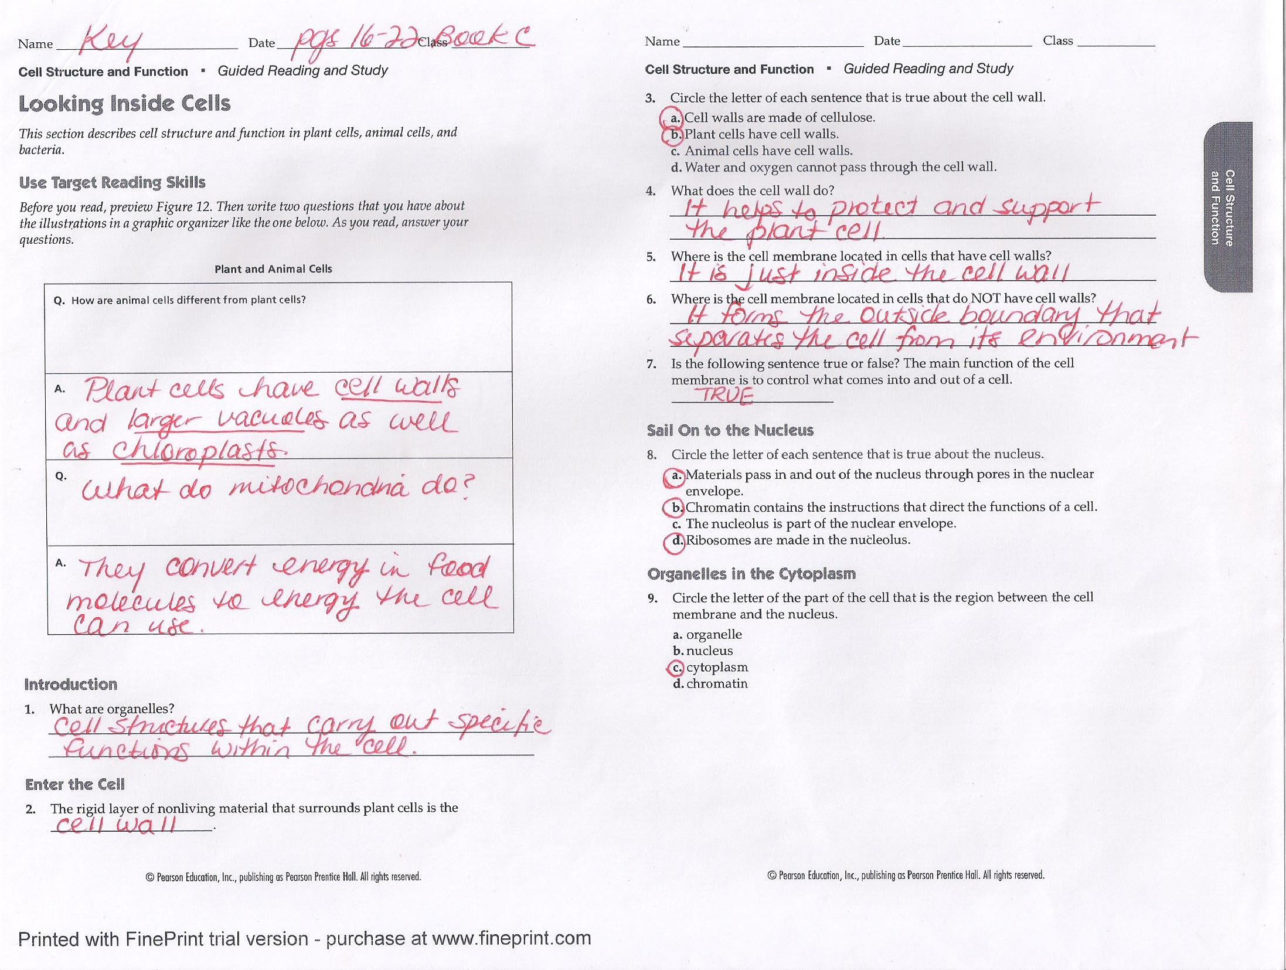 Name Key Date pgs 16-22 Class Book C
Cell Structure and Function ▪ Guided Reading and Study
Looking Inside Cells
This section describes cell structure and function in plant cells, animal cells, and
bacteria.
Use Target Reading Skills
Before you read, preview Figure 12. Then write two questions that you have about
the illustrations in a graphic organizer like the one below. As you read, answer your
questions.
Plant and Animal Cells
Q. How are animal cells different from plant cells?
A. Plant cells have cell walls
and larger vacuoles as well
as chloroplasts.
Q. What do mitochondria do?
A. They convert energy in food
molecules to energy the cell
can use.
Introduction
1. What are organelles?
Cell structures that carry out specific
functions within the cell.
Enter the Cell
2. The rigid layer of nonliving material that surrounds plant cells is the
cell wall.
© Pearson Education, Inc., publishing as Pearson Prentice Hall. All rights reserved.
Name Date Class
Cell Structure and Function ▪ Guided Reading and Study
3. Circle the letter of each sentence that is true about the cell wall.
a. Cell walls are made of cellulose.
b. Plant cells have cell walls.
c. Animal cells have cell walls.
d. Water and oxygen cannot pass through the cell wall.
4. What does the cell wall do?
It helps to protect and support
the plant cell.
5. Where is the cell membrane located in cells that have cell walls?
It is just inside the cell wall
6. Where is the cell membrane located in cells that do NOT have cell walls?
It forms the outside boundary that
separates the cell from its environment
7. Is the following sentence true or false? The main function of the cell
membrane is to control what comes into and out of a cell.
TRUE
Sail On to the Nucleus
8. Circle the letter of each sentence that is true about the nucleus.
a. Materials pass in and out of the nucleus through pores in the nuclear
envelope.
b. Chromatin contains the instructions that direct the functions of a cell.
c. The nucleolus is part of the nuclear envelope.
d. Ribosomes are made in the nucleolus.
Organelles in the Cytoplasm
9. Circle the letter of the part of the cell that is the region between the cell
membrane and the nucleus.
a. organelle
b. nucleus
c. cytoplasm
d. chromatin
© Pearson Education, Inc., publishing as Pearson Prentice Hall. All rights reserved.
Cell Structure
and Function
Printed with FinePrint trial version - purchase at www.fineprint.com